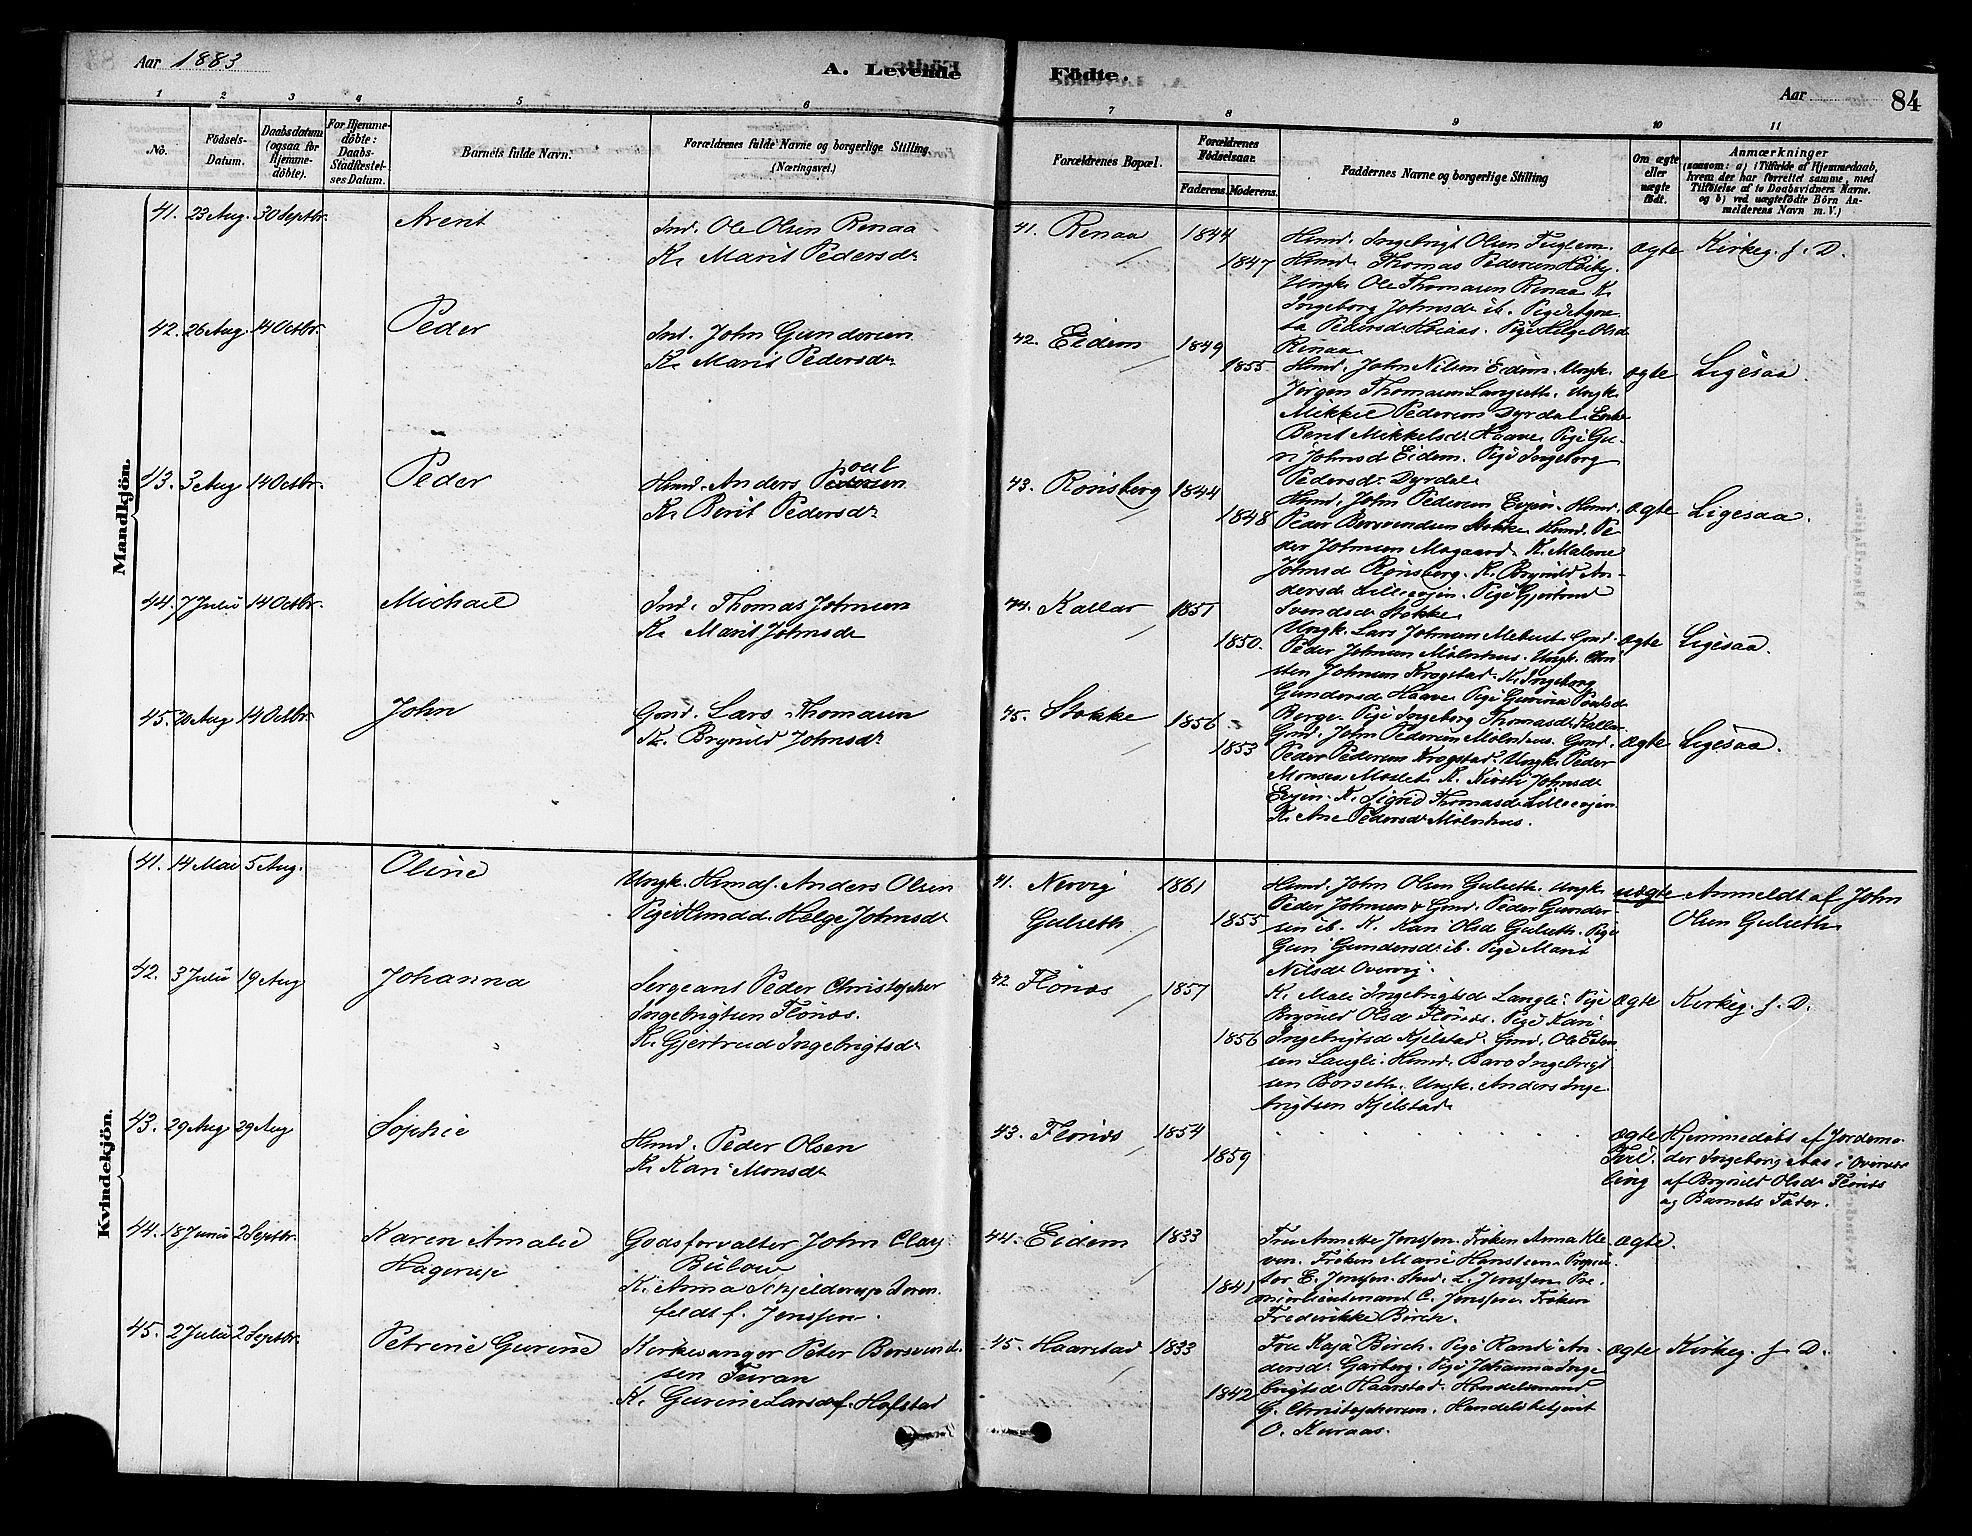 Aar 1883
A. Levende
Födte.
Aar
84
1 2 3 4 5 6 7 8 9 10 11
No.
Födsels-Datum.
Daabsdatum (ogsaa for Hjemmedöbte).
For Hjemmedöbte: Daabs-Stadfæstelses Datum.
Barnets fulde Navn.
Forældrenes fulde Navne og borgerlige Stilling. (Næringsvei.)
Forældrenes Bopæl.
Forældrenes Födselsaar.
Faderens. Moderens.
Faddernes Navne og borgerlige Stilling
Om ægte eller uægte födt.
Anmærkninger
(saasom: a) i Tilfælde af Hjemmedaab, hvem der har forrettet samme, med Tilföielse af to Daabsvidners Navne. og b) ved uægtefödte Börn Anmelderens Navn m. V.)
Mandkjön.
41. 23 Aug. 30 Septbr.
Arent
Ind. Ole Olsen Renaa
K. Marit Pedersdr
41. Renaa
1844
1847
Hmd. Ingebrigt Olsen Fuglem.
Hmd. Thomas Pedersen Høiby.
Ungk. Ole Thomasen Renaa K.
Ingeborg Johnsdr ib. Pige
Pedersdr Høiaas. Pige Helge Olsdr
Renaa
ægte
Kirkeg. f. D.
42. 26 Aug. 14 Octbr.
Peder
Ind. John Gundersen
K. Marit Pedersdr
42. Eidem
1849
1855
Hmd. John Nilsen Eidem. Ungk.
Jörgen Thomasen Langseth. Ungk.
Mikkel Pedersen Dyrdal. Enke
Berit Mikkelsdr Haave. Pige Gu-
ri Johnsd Eidem. Pige Ingeborg
Pedersdr Dyrdal
ægte
Ligesaa.
43. 3 Aug 14 Octbr.
Peder
Hmd. Anders Poul
K. Berit Pedersdr
43. Rönsberg
1844
1848
Hmd. John Pedersen Evjen. Hmd.
Peder Bersvendsen Stokke. Hmd. Pe-
der Johnsen Mogaard. K. Malene
Johnsd Rönsberg. K. Brynild An-
dersd. Lilleevjen. Pige Gjertrud
Svendsdr Stokke
ægte
Ligesaa.
44. 7 Juli 14 Octbr.
Michael
Ind. Thomas Johnsen
K. Marit Johnsdr
44. Kallar
1851
1850.
Ungk. Lars Johnsen Gmd.
Peder Johnsen Mölnhus. Ungk. Chri
sten Johnsen Krogstad. K. Ingeborg
Gundersdr Haave. Pige Gurina Poulsdr
Berge. Pige Ingeborg Thomasdr Kallar
ægte
Ligesaa.
45. 20 Aug 14 Octbr.
John
Gmd. Lars Thomasen
K. Brynild Johnsdr
45. Stokke
1856
1853
Gmd. John Pedersen Mölnhus. Gmd.
Peder Pedersen Krogstad. Ungk. Peder
Monsen Moslet. K. Kirsti Johnsdr
Evjen. K. Sigrid Thomasdr Lilleevjen
K. Ane Pedersdr Mölnhus.
ægte
Ligesaa.
Kvindekjön.
41. 14 Mai 5 Aug.
Oline
Ungk. Hmdsf. Anders Olsen
Pige Hmdd. Helge Johnsdr
41. Nervig
Gulseth
1861
1855
Hmd. John Olsen Gulseth. Ungk.
Peder Johnsen & Gmd. Peder Gunder-
sen ib. K. Kari Olsdr Gulseth. Pige
Guri Gundersdr ib. Pige Marit
Nilsdr Overvig.
uægte
Anmeldt af John
Olsen Gulseth
42. 3 Juli 19 Aug
Johanna
Sergeant Peder Christopher
Ingebrigtsen Flönæs.
K. Gjertrud Ingebrigtsdr
42 Flönæs
1857
1856
K. Mali Ingebrigtsdr Langli. Pige
Brynild Olsdr Flönæs. Pige Kari
Ingebrigtsdr Kjelstad. Gmd. Ole
sen Langli. Hmd. Baro Ingebrigt
sen Borseth. Ungk. Anders Inge
brigtsen Kjelstad
ægte
Kirkeg. f. D.
43. 29 Aug 29 Aug
Sophie
Hmd. Peder Olsen
K. Kari Monsdr
43. Flönæs
1854
1859
ægte
Tvil
ling
Hjemmedöbt af Jordemo-
der Ingeborg Aas i Overvær
af Brynild Olsdr Flönæs
og Barnets Fader.
44. 18 Juni 2 Septbr.
Karen Amalie
Hagerup
Godsforvalter John Clay
Bülow
K. Anna Schjelderup Doren
feldt f. Jenssen.
44. Eidem
1833
1841
Fru Annette Jenssen. Fröken Anna Kle
ven. Fröken Marie Hansteen. Proprie
tær E. Jenssen. Stud. L. Jenssen. Pre
mierlieutenant C. Jenssen. Fröken
Frederikke Birch.
ægte.
45. 2 Juli 2 Septbr.
Petrene Gurine
Kirkesanger Peter Bersvend
sen Turan
K. Gurine Larsdr f. Hofstad
45. Haarstad
1833
1842
Fru Kaja Birch. Pige Randi An-
dersdr Garberg. Pige Johanna Inge
brigtsdr Haarstad. Handelsmand
G. Christophersen. Handelsbetjent
O. Kuraas.
ægte
Kirkeg. f. D.